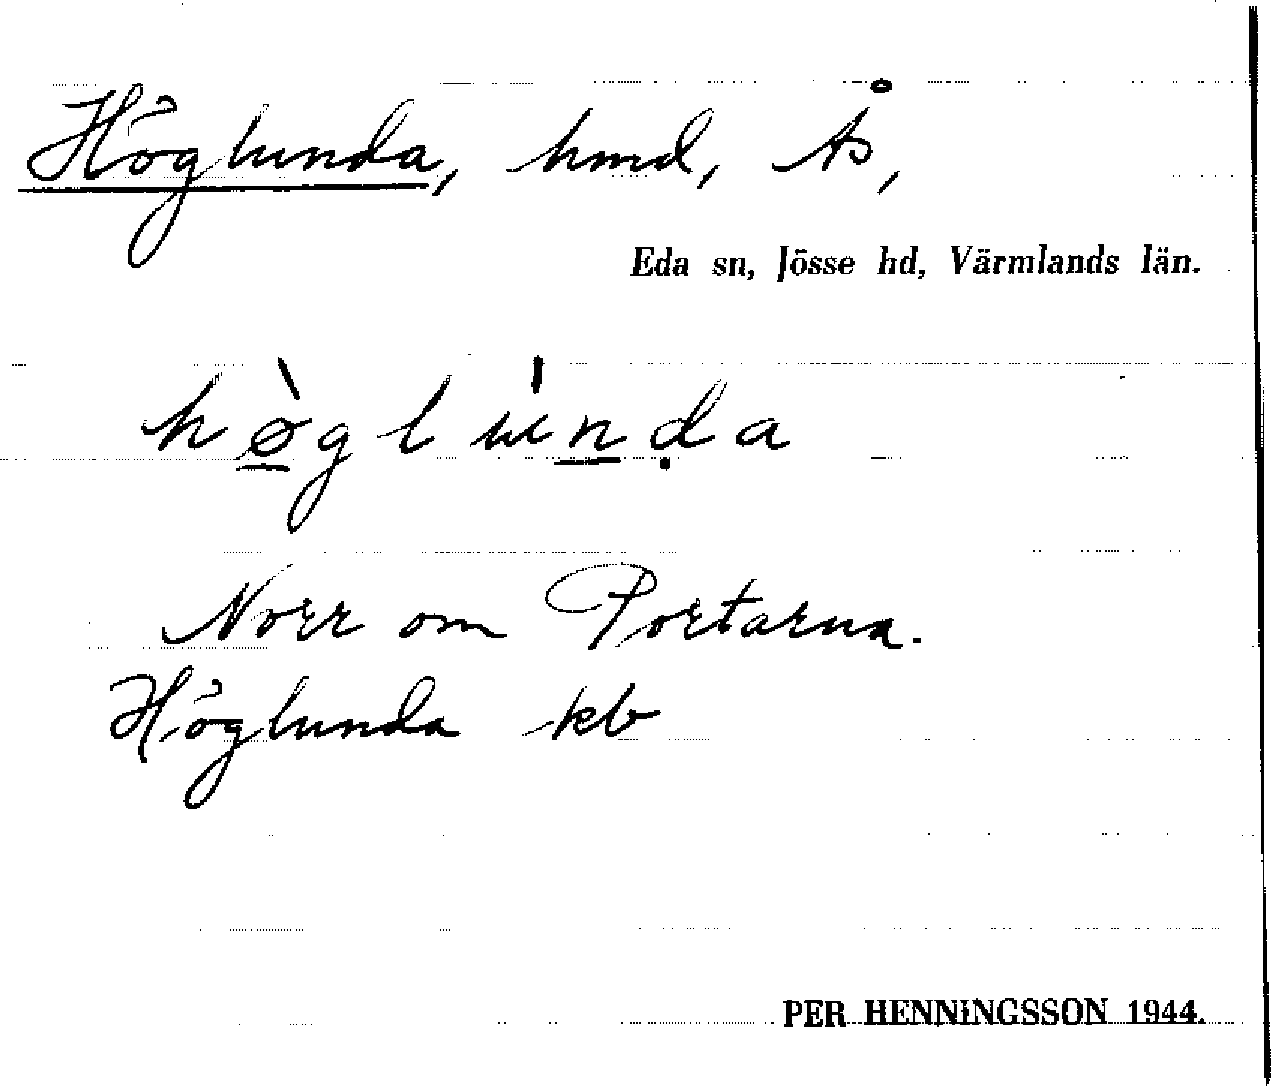 Höglunda, hmd, Ås,
Eda sn, Jösse hd, Värmlands län.
hø̀glu̍nḍa
Norr om Portarna.
Höglunda kb
PER HENNINGSSON 1944.